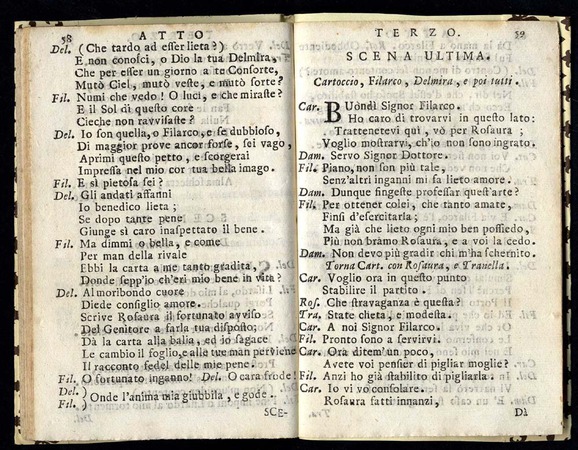 58 ATTO
Del. (Che tardo ad esser lieta?)
E non conosci, o Dio la tua Delmira,
Che per esser un giorno a te Consorte,
Mutò Ciel, mutò veste, e mutò sorte?
Fil. Numi che vedo! O luci, e che miraste?
E il Sol di questo core
Cieche non ravvisaste?
Del. Io son quella, o Filarco, e se dubbioso,
Di maggior prove ancor forse, sei vago,
Aprimi questo petto, e scorgerai
Impressa nel mio cor tua bella imago.
Fil. E sì pietosa sei?
Del. Gli andati affanni
Io benedico lieta;
Se dopo tante pene
Giunge sì caro inaspettato il bene.
Fil. Ma dimmi o bella, e come
Per man della rivale
Ebbi la carta a me tanto gradita,
Donde sepp'io ch'eri mio bene in vita?
Del. Al moribondo cuore
Diede consiglio amore.
Scrive Rosaura il fortunato avviso
Del Genitore a farla tua disposto;
Dà la carta alla balia, ed io sagace
Le cambio il foglio, e alle tue man perviene
Il racconto fedel delle mie pene.
Fil. O fortunato inganno! Del. O cara frode!
Del. Fil. ) Onde l'anima mia giubbila, e gode.
SCE-
TERZO. 59
SCENA ULTIMA.
Cartoccio, Filarco, Delmira, e poi tutti.
Car. BUondì Signor Filarco.
Ho caro di trovarvi in questo lato:
Trattenetevi quì, vò per Rosaura;
Voglio mostrarvi, ch'io non sono ingrato.
Dam. Servo Signor Dottore.
Fil. Piano, non son più tale,
Senz'altri inganni mi fa lieto amore.
Dam. Dunque fingeste professar quest'arte?
Fil. Per ottener colei, che tanto amate,
Finsi d'esercitarla;
Ma già che lieto ogni mio ben possiedo,
Più non bràmo Rosaura, e a voi la cedo.
Dam. Non devo più gradir chi m'ha schernito.
Torna Cart. con Rosaura, e Tranella.
Car. Voglio ora in questo punto
Stabilire il partito.
Ros. Che stravaganza è questa?
Tra. State cheta, e modesta.
Car. A noi Signor Filarco.
Fil. Pronto sono a servirvi.
Car. Ora ditem'un poco,
Avete voi pensier di pigliar moglie?
Fil. Anzi ho già stabilito di pigliarla.
Car. Io vi vò consolare.
Rosaura fatti innanzi,
Dà